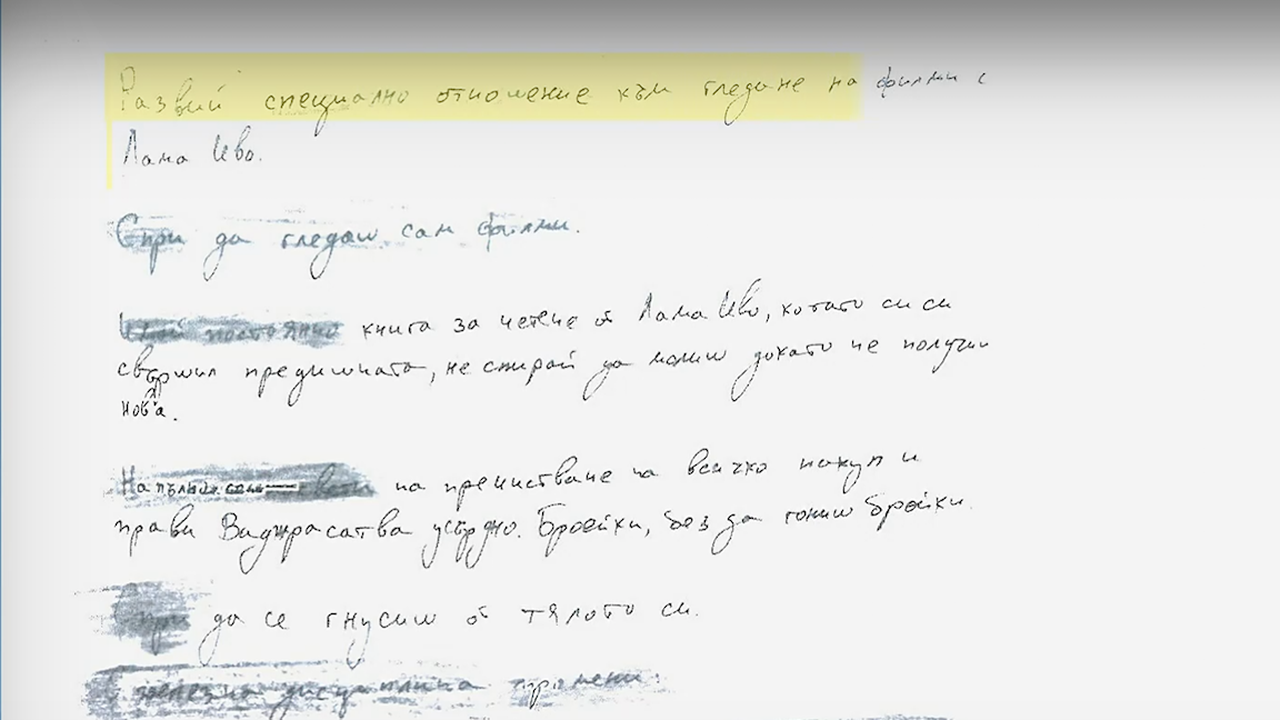 Развий специално отношение към гледане на филми с
Лама Иво.
Спри да гледаш сам филми.
Имай постоянно книга за четене от Лама Иво, когато си си
свършил предишната, не спирай да молиш докато не получиш
нова.
на пречистване на всичко макул и
прави Ваджрасатва усърдно. Бройки, без да гониш бройки.
Спри да се гнусиш от тялото си.
желязна дисциплина